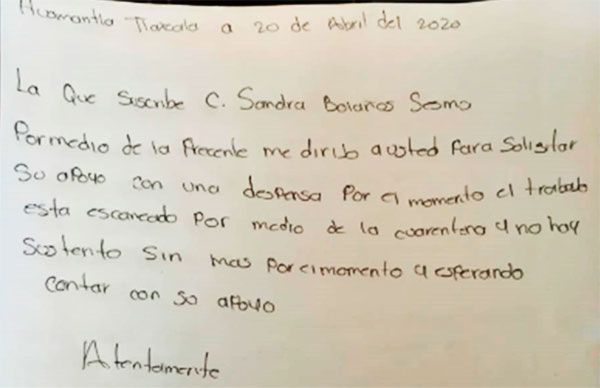 Huamantla Tlaxcala a 20 de Abril del 2020
La Que Suscribe C. Sandra Bolaños Sesmo
Por medio de la Precente me dirijo a usted Para Solisitar
Su apoyo con una despensa Por el momento el trabajo
esta escaneado Por medio de la cuarentena y no hay
Sustento Sin mas Por el momento y esperando
contar con su apoyo
Atentamente